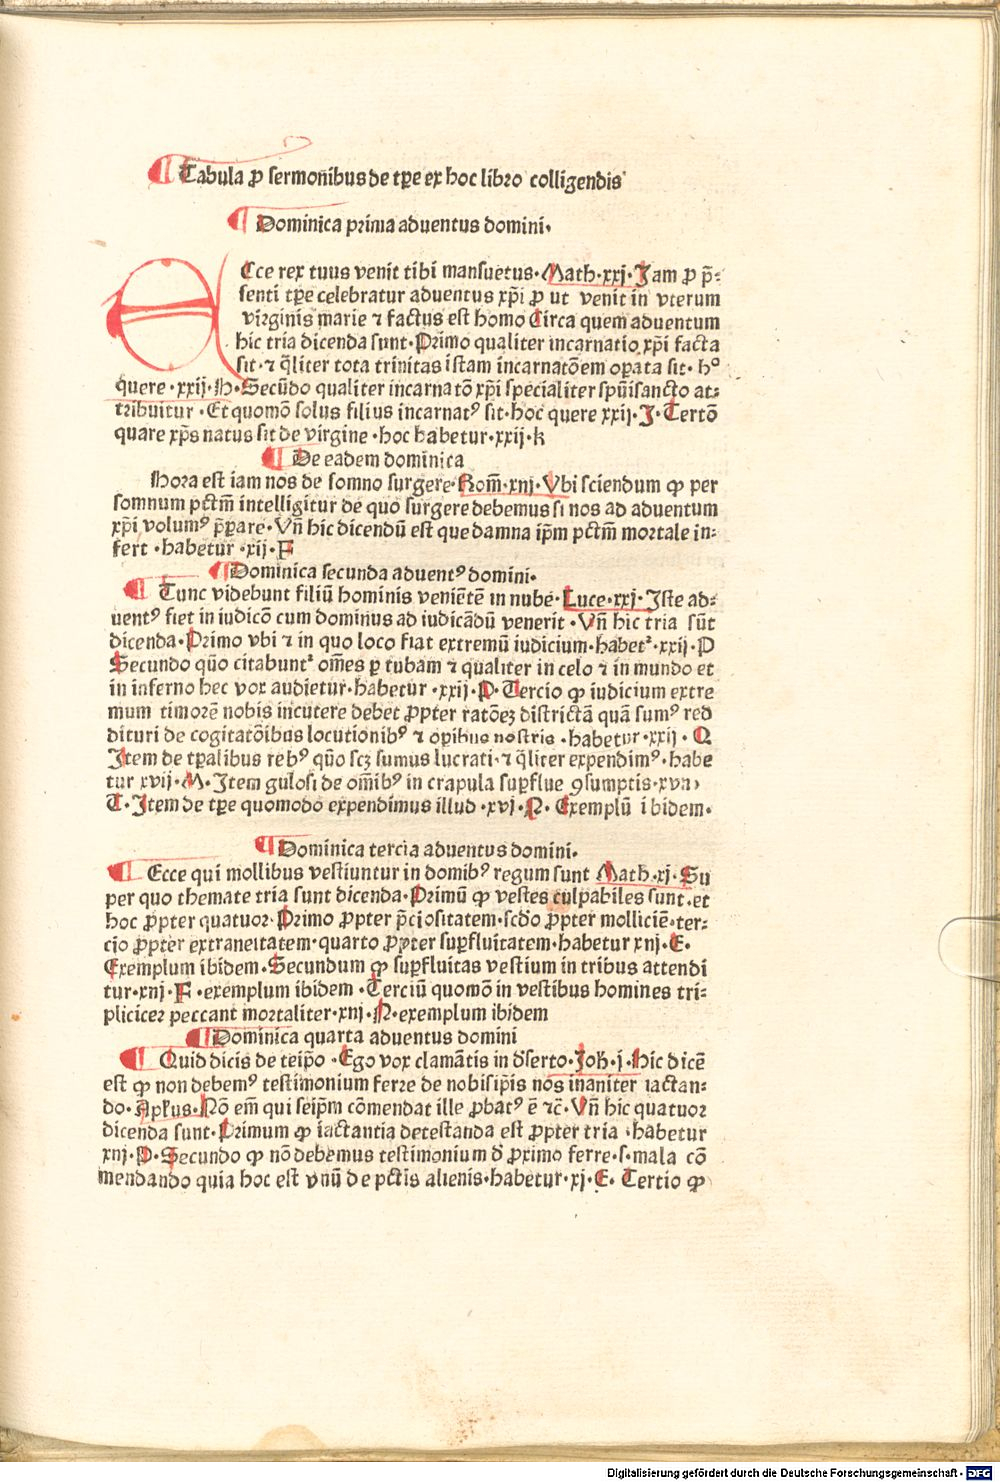 ¶ Tabula ꝑ sermonibus de tꝑe ex hoc libro colligendis
¶ Dominica prima aduentus domini.
ECce rex tuus venit tibi mansuetus. Math. xxj. Jam ꝑ p̄-
senti tꝑe celebratur aduentus xp̄i ꝑ ut venit in vterum
virginis marie ⁊ factus est homo Circa quem aduentum
hic tria dicenda sunt. Primo qualiter incarnatio xp̄i facta
sit. ⁊ q̄liter tota trinitas istam incarnatōem oꝑata sit. hº
quere .xxij. H. Secūdo qualiter incarnatō xp̄i specialiter spūisancto at-
tribuitur . Et quomō solus filius incarnatꝰ sit. hoc quere xxij. J. Tertō
quare xp̄s natus sit de virgine . hoc habetur. xxij. k
¶ De eadem dominica
Hora est iam nos de somno surgere. Rom̄. xnj. Vbi sciendum ꝙ per
somnum pctm̄ intelligitur de quo surgere debemus si nos ad aduentum
xp̄i volumꝰ p̄ꝑare. Vn̄ hic dicendū est que damna ip̄m pctm̄ mortale in-
fert . habetur .xij. F
¶ Dominica secunda aduentꝰ domini.
¶ Tunc videbunt filiū hominis veniētē in nube. Luce. xxj. Iste ad-
uentꝰ fiet in iudicō cum dominus ad iudicādū venerit . Vn̄ hic tria sūt
dicenda. Primo vbi ⁊ in quo loco fiat extremū iudicium. habet᷑. xxij. P
Secundo quō citabunt᷑ om̄es ꝑ tubam ⁊ qualiter in celo ⁊ in mundo et
in inferno hec vox audietur. habetur .xxij. P. Tercio ꝙ iudicium extre
mum timorē nobis incutere debet ꝓpter ratōeꝫ districtā quā sumꝰ red
dituri de cogitatōibus locutionibꝰ ⁊ oꝑibus nostris . habetur .xxij . Q
Item de tꝑalibus rebꝰ quō scꝫ sumus lucrati. ⁊ q̄liter expendimꝰ. habe
tur xvij. M. Item gulosi de om̄ibꝰ in crapula suꝑflue ꝯsumptis. xvn)
T. Item de tꝑe quomodo expendimus illud .xvj. N. Exemplū ibidem.
¶ Dominica tercia aduentus domini.
¶ Ecce qui mollibus vestiuntur in domibꝰ regum sunt Math. xj. Su
per quo themate tria sunt dicenda. Primū ꝙ vestes culpabiles sunt. et
hoc ꝓpter quatuor. Primo ꝓpter p̄ciositatem. scdo ꝓpter molliciē. ter-
cio ꝓpter extraneitatem. quarto ꝓpter suꝑfluitatem. habetur xnj. E.
Exemplum ibidem. Secundum ꝙ suꝑfluitas vestium in tribus attendi
tur. xnj. F . exemplum ibidem . Terciū quomō in vestibus homines tri-
plicicer peccant mortaliter. xnj. N. exemplum ibidem
¶ Dominica quarta aduentus domini
¶ Quid dicis de teip̄o . Ego vox clamātis in d̄serto. Joh. j. Hic dicē
est ꝙ non debemꝰ testimonium ferre de nobisip̄is nos inaniter iactan-
do. Ap̄kus. Nō em̄ qui seip̄m cōmendat ille ꝓbatꝰ ē ⁊c̄. Vn̄ hic quatuor
dicenda sunt. Primum ꝙ iactantia detestanda est ꝓpter tria . habetur
xnj. P. Secundo ꝙ nō debemus testimonium d̄ ꝓximo ferre. s. mala cō
mendando quia hoc est vnū de pctis alienis. habetur. xj. E. Tertio ꝙ
Digitalisierung gefördert durch die Deutsche Forschungsgemeinschaft - DFG